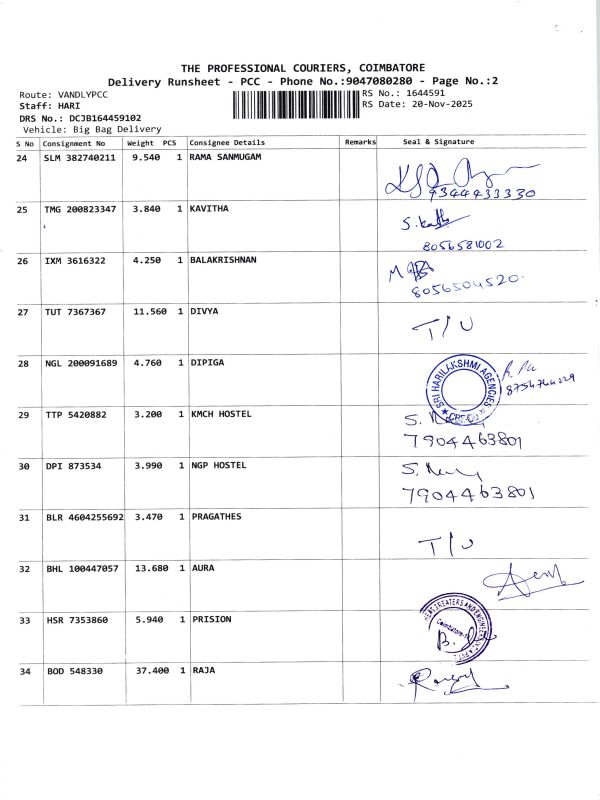 THE PROFESSIONAL COURIERS, COIMBATORE
Delivery Runsheet - PCC - Phone No.:9047080280 - Page No.:2
Route: VANDLYPCC
RS No.: 1644591
Staff: HARI
RS Date: 20-Nov-2025
DRS No.: DCJB164459102
Vehicle: Big Bag Delivery
S No Consignment No Weight PCS Consignee Details Remarks Seal & Signature
24 SLM 382740211 9.540 1 RAMA SANMUGAM
9344433330
25 TMG 200823347 3.840 1 KAVITHA
8056581002
26 IXM 3616322 4.250 1 BALAKRISHNAN
8056504520
27 TUT 7367367 11.560 1 DIVYA
T/U
28 NGL 200091689 4.760 1 DIPIGA
SRI HARILAKSHMI AGENCIES
29 TTP 5420882 3.200 1 KMCH HOSTEL
7904463801
30 DPI 873534 3.990 1 NGP HOSTEL
7904463801
31 BLR 4604255692 3.470 1 PRAGATHES
T/U
32 BHL 100447057 13.680 1 AURA
33 HSR 7353860 5.940 1 PRISION
34 BOD 548330 37.400 1 RAJA